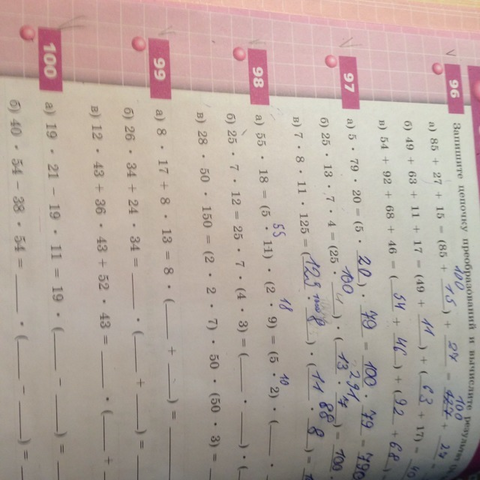 Запишите цепочку преобразований и вычислите
96
а) 85 + 27 + 15 = (85 + 15) + 27 =
б) 49 + 63 + 11 + 17 = (49 + 11) + (63 + 17) =
в) 54 + 92 + 68 + 46 = (54 + 46) + (92 + 68)
97
а) 5 · 79 · 20 = (5 · 20) · 79 = 100 · 79 =
б) 25 · 13 · 7 · 4 = (25 · ) · (13 · ) = 100 ·
в) 7 · 8 · 11 · 125 = (125 · ) · (11 · ) =
98
а) 55 · 18 = (5 · 11) · (2 · 9) = (5 · 2) · (
б) 25 · 7 · 12 = 25 · 7 · (4 · 3) = ( · ) · (
в) 28 · 50 · 150 = (2 · 2 · 7) · 50 · (50 · 3) =
99
а) 8 · 17 + 8 · 13 = 8 · ( + ) =
б) 26 · 34 + 24 · 34 = · ( + ) =
в) 12 · 43 + 36 · 43 + 52 · 43 = · ( +
100
а) 19 · 21 − 19 · 11 = 19 · ( − ) =
б) 40 · 54 − 38 · 54 = · ( − ) =